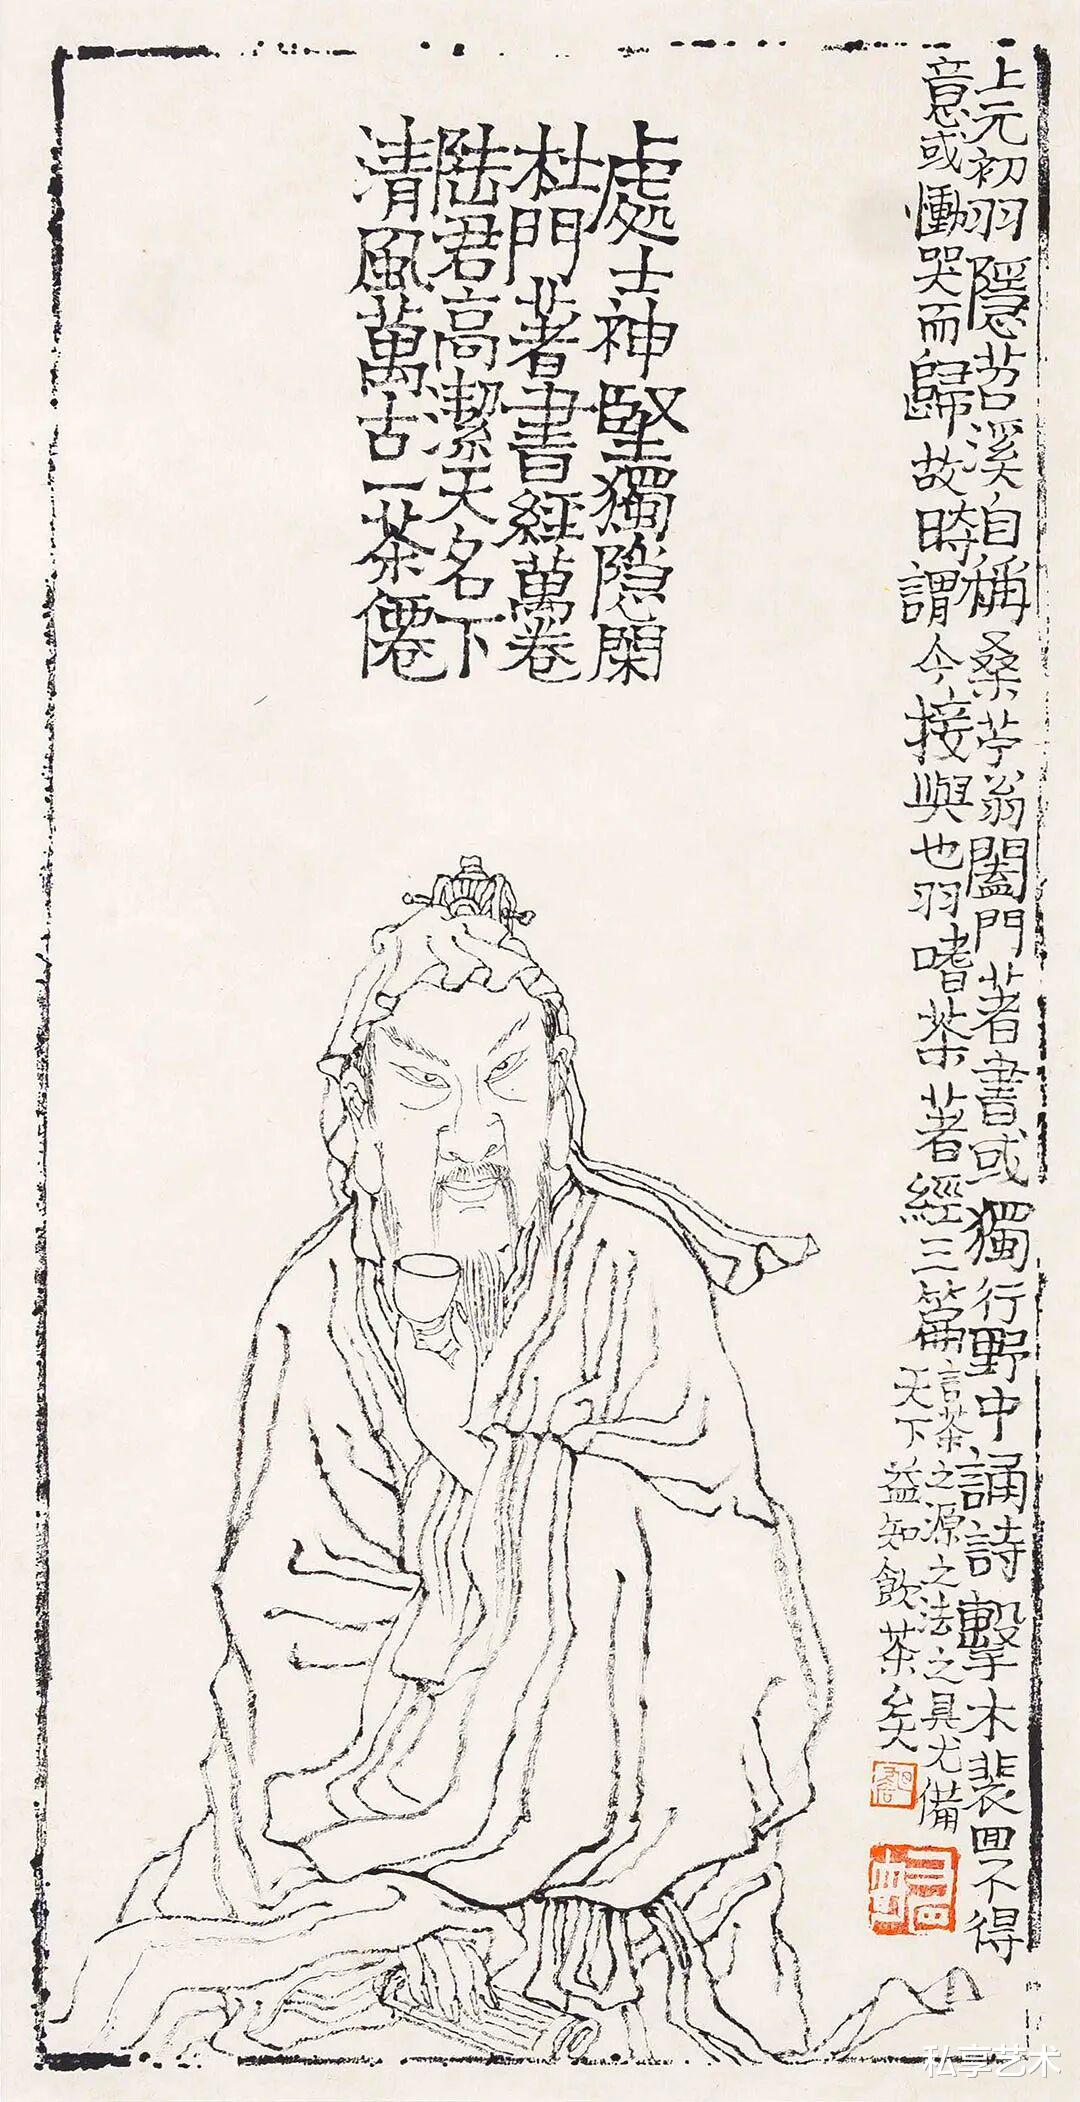 上元初羽隱苕溪自稱桑苧翁闔門著書或獨行野中誦詩擊木裴回不得
意或慟哭而歸故時謂今接與也羽嗜茶著經三篇言茶之源之法之具尤備
天下益知飲茶矣
處士神堅獨隐閑
杜門著書經萬卷
陸君高潔天名下
清風萬古一茶僊
私享艺术